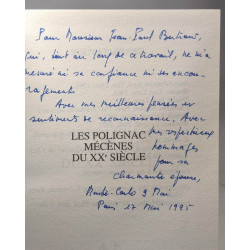 Pour Monsieur Jean Paul Bertrand,
qui, tout au long de ce travail, ne m'a
mesuré ni sa confiance ni ses encou-
ragements
Avec mes meilleures pensées et
sentiments de reconnaissance. Avec
mes respectueux
LES POLIGNAC
MÉCÈNES
DU XXe SIÈCLE
hommages
pour sa
charmante épouse,
Monte-Carlo 9 Mai
Paris 17 Mai 1995